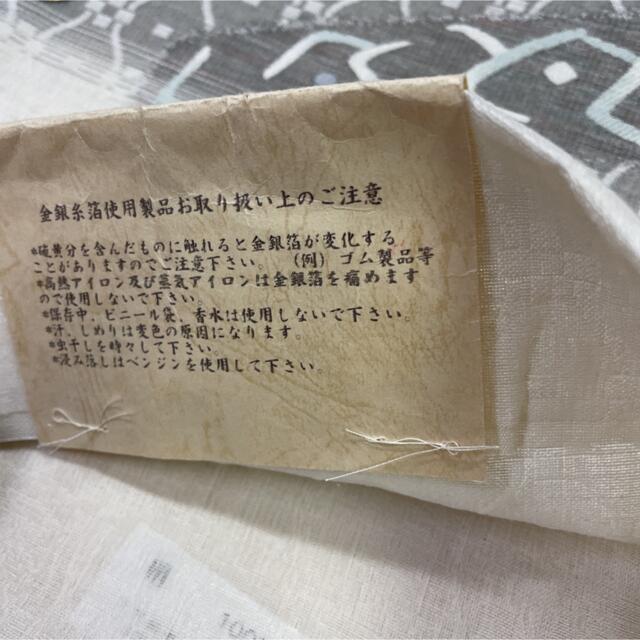 金銀糸箔使用製品お取り扱い上のご注意
*硫黄分を含んだものに触れると金銀箔が変化する
ことがありますのでご注意下さい。（例）ゴム製品等
*高熱アイロン及び蒸気アイロンは金銀箔を痛めます
ので使用しないで下さい。
*保存中、ビニール袋、香水は使用しないで下さい。
*汗、しめりは変色の原因になります。
*虫干しを時々して下さい。
*浸み落しはベンジンを使用して下さい。
100